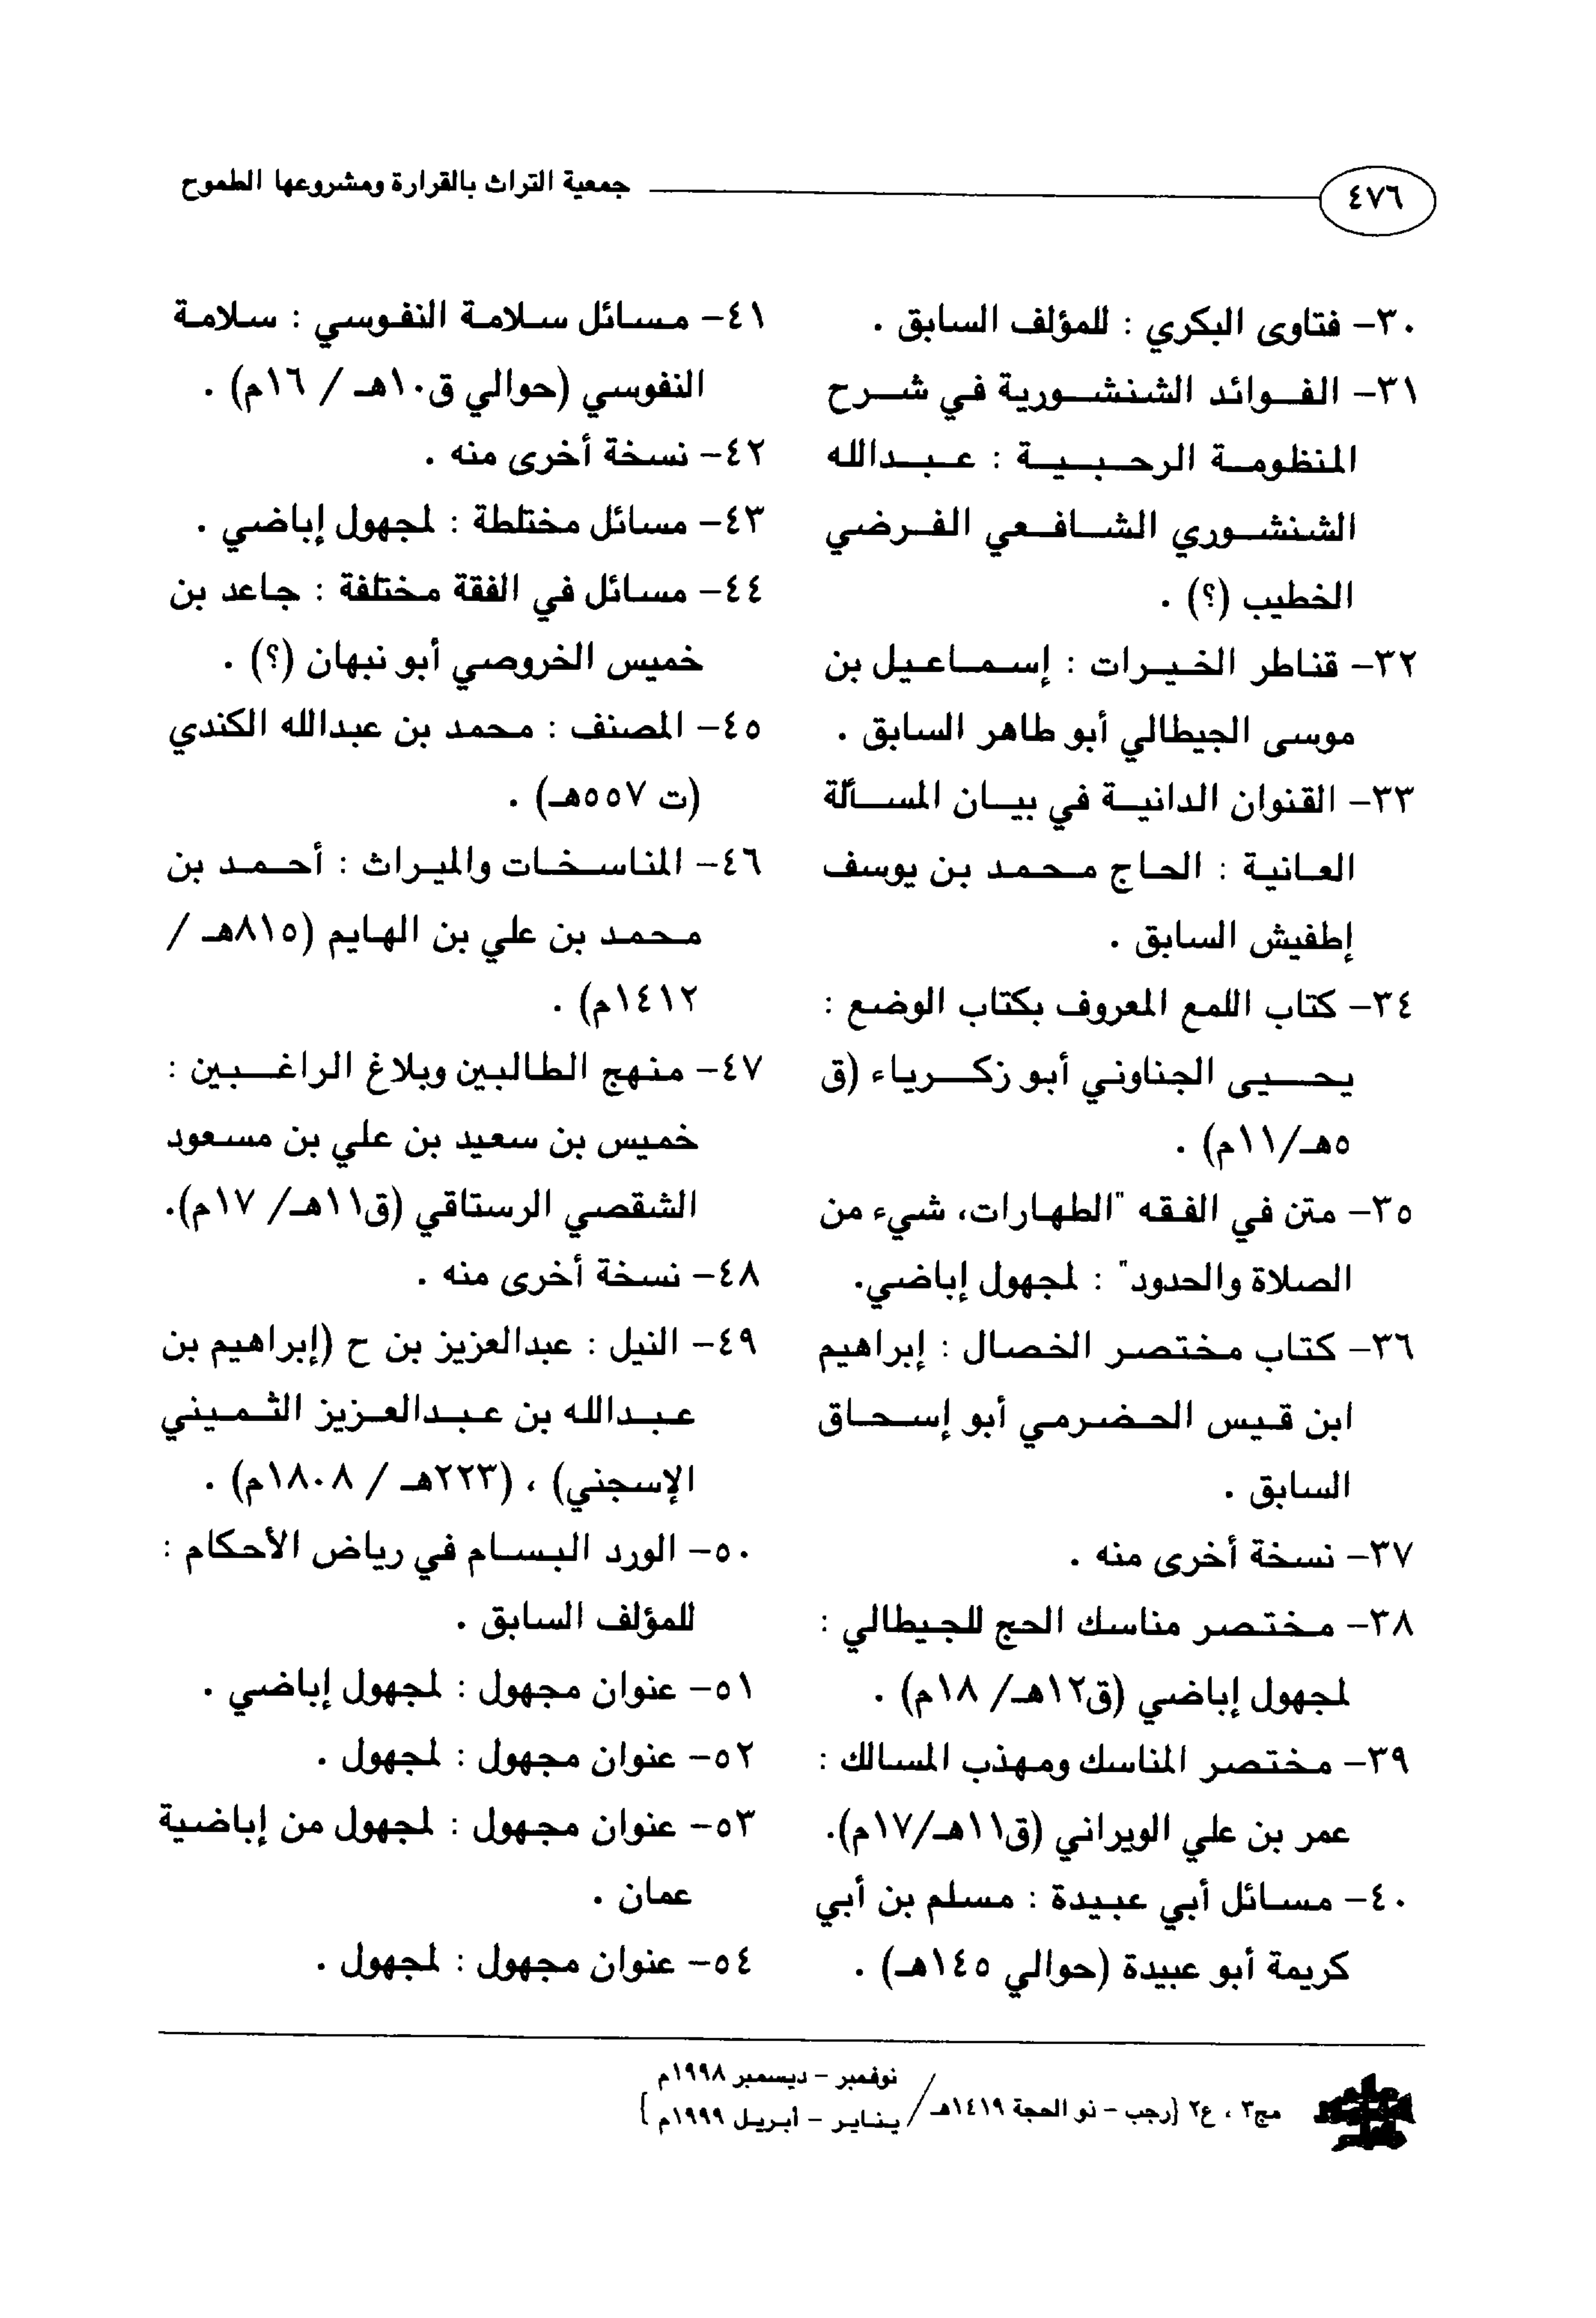 ٤٧٦
جمعية التراث بالقرارة ومشروعها الطموح
٣٠- فتاوى البكري : للمؤلف السابق .
٣١- الفوائد الشنشورية في شرح
المنظومة الرحبية : عبدالله
الشنشوري الشافعي الفرضي
الخطيب (؟) .
٣٢- قناطر الخيرات : إسماعيل بن
موسى الجيطالي أبو طاهر السابق .
٣٣- القنوان الدانية في بيان المسألة
العانية : الحاج محمد بن يوسف
إطفيش السابق .
٣٤- كتاب اللمع المعروف بكتاب الوضع :
يحيى الجناوني أبو زكرياء (ق
٥هـ/١١م) .
٣٥- متن في الفقه "الطهارات، شيء من
الصلاة والحدود" : لمجهول إباضي.
٣٦- كتاب مختصر الخصال : إبراهيم
ابن قيس الحضرمي أبو إسحاق
السابق .
٣٧- نسخة أخرى منه .
٣٨- مختصر مناسك الحج للجيطالي :
لمجهول إباضي (ق١٢هـ/ ١٨م) .
٣٩- مختصر المناسك ومهذب المسالك :
عمر بن علي الويراني (ق١١هـ/١٧م).
٤٠- مسائل أبي عبيدة : مسلم بن أبي
كريمة أبو عبيدة (حوالي ١٤٥هـ) .
٤١- مسائل سلامة النفوسي : سلامة
النفوسي (حوالي ق١٠هـ / ١٦م) .
٤٢- نسخة أخرى منه .
٤٣- مسائل مختلطة : لمجهول إباضي .
٤٤- مسائل في الفقة مختلفة : جاعد بن
خميس الخروصي أبو نبهان (؟) .
٤٥- المصنف : محمد بن عبدالله الكندي
(ت ٥٥٧هـ) .
٤٦- المناسخات والميراث : أحمد بن
محمد بن علي بن الهايم (٨١٥هـ /
١٤١٢م) .
٤٧- منهج الطالبين وبلاغ الراغبين :
خميس بن سعيد بن علي بن مسعود
الشقصي الرستاقي (ق١١هـ/ ١٧م).
٤٨- نسخة أخرى منه .
٤٩- النيل : عبدالعزيز بن ح (إبراهيم بن
عبدالله بن عبدالعزيز الثميني
الإسجني) ، (٢٢٣هـ / ١٨٠٨م) .
٥٠- الورد البسام في رياض الأحكام :
للمؤلف السابق .
٥١- عنوان مجهول : لمجهول إباضي .
٥٢- عنوان مجهول : لمجهول .
٥٣- عنوان مجهول : لمجهول من إباضية
عمان .
٥٤- عنوان مجهول : لمجهول .
نوفمبر - ديسمبر ١٩٩٨م
مج٣ ، ع٢ {رجب - ذو الحجة ١٤١٩هـ/
يناير - أبريل ١٩٩٩م }